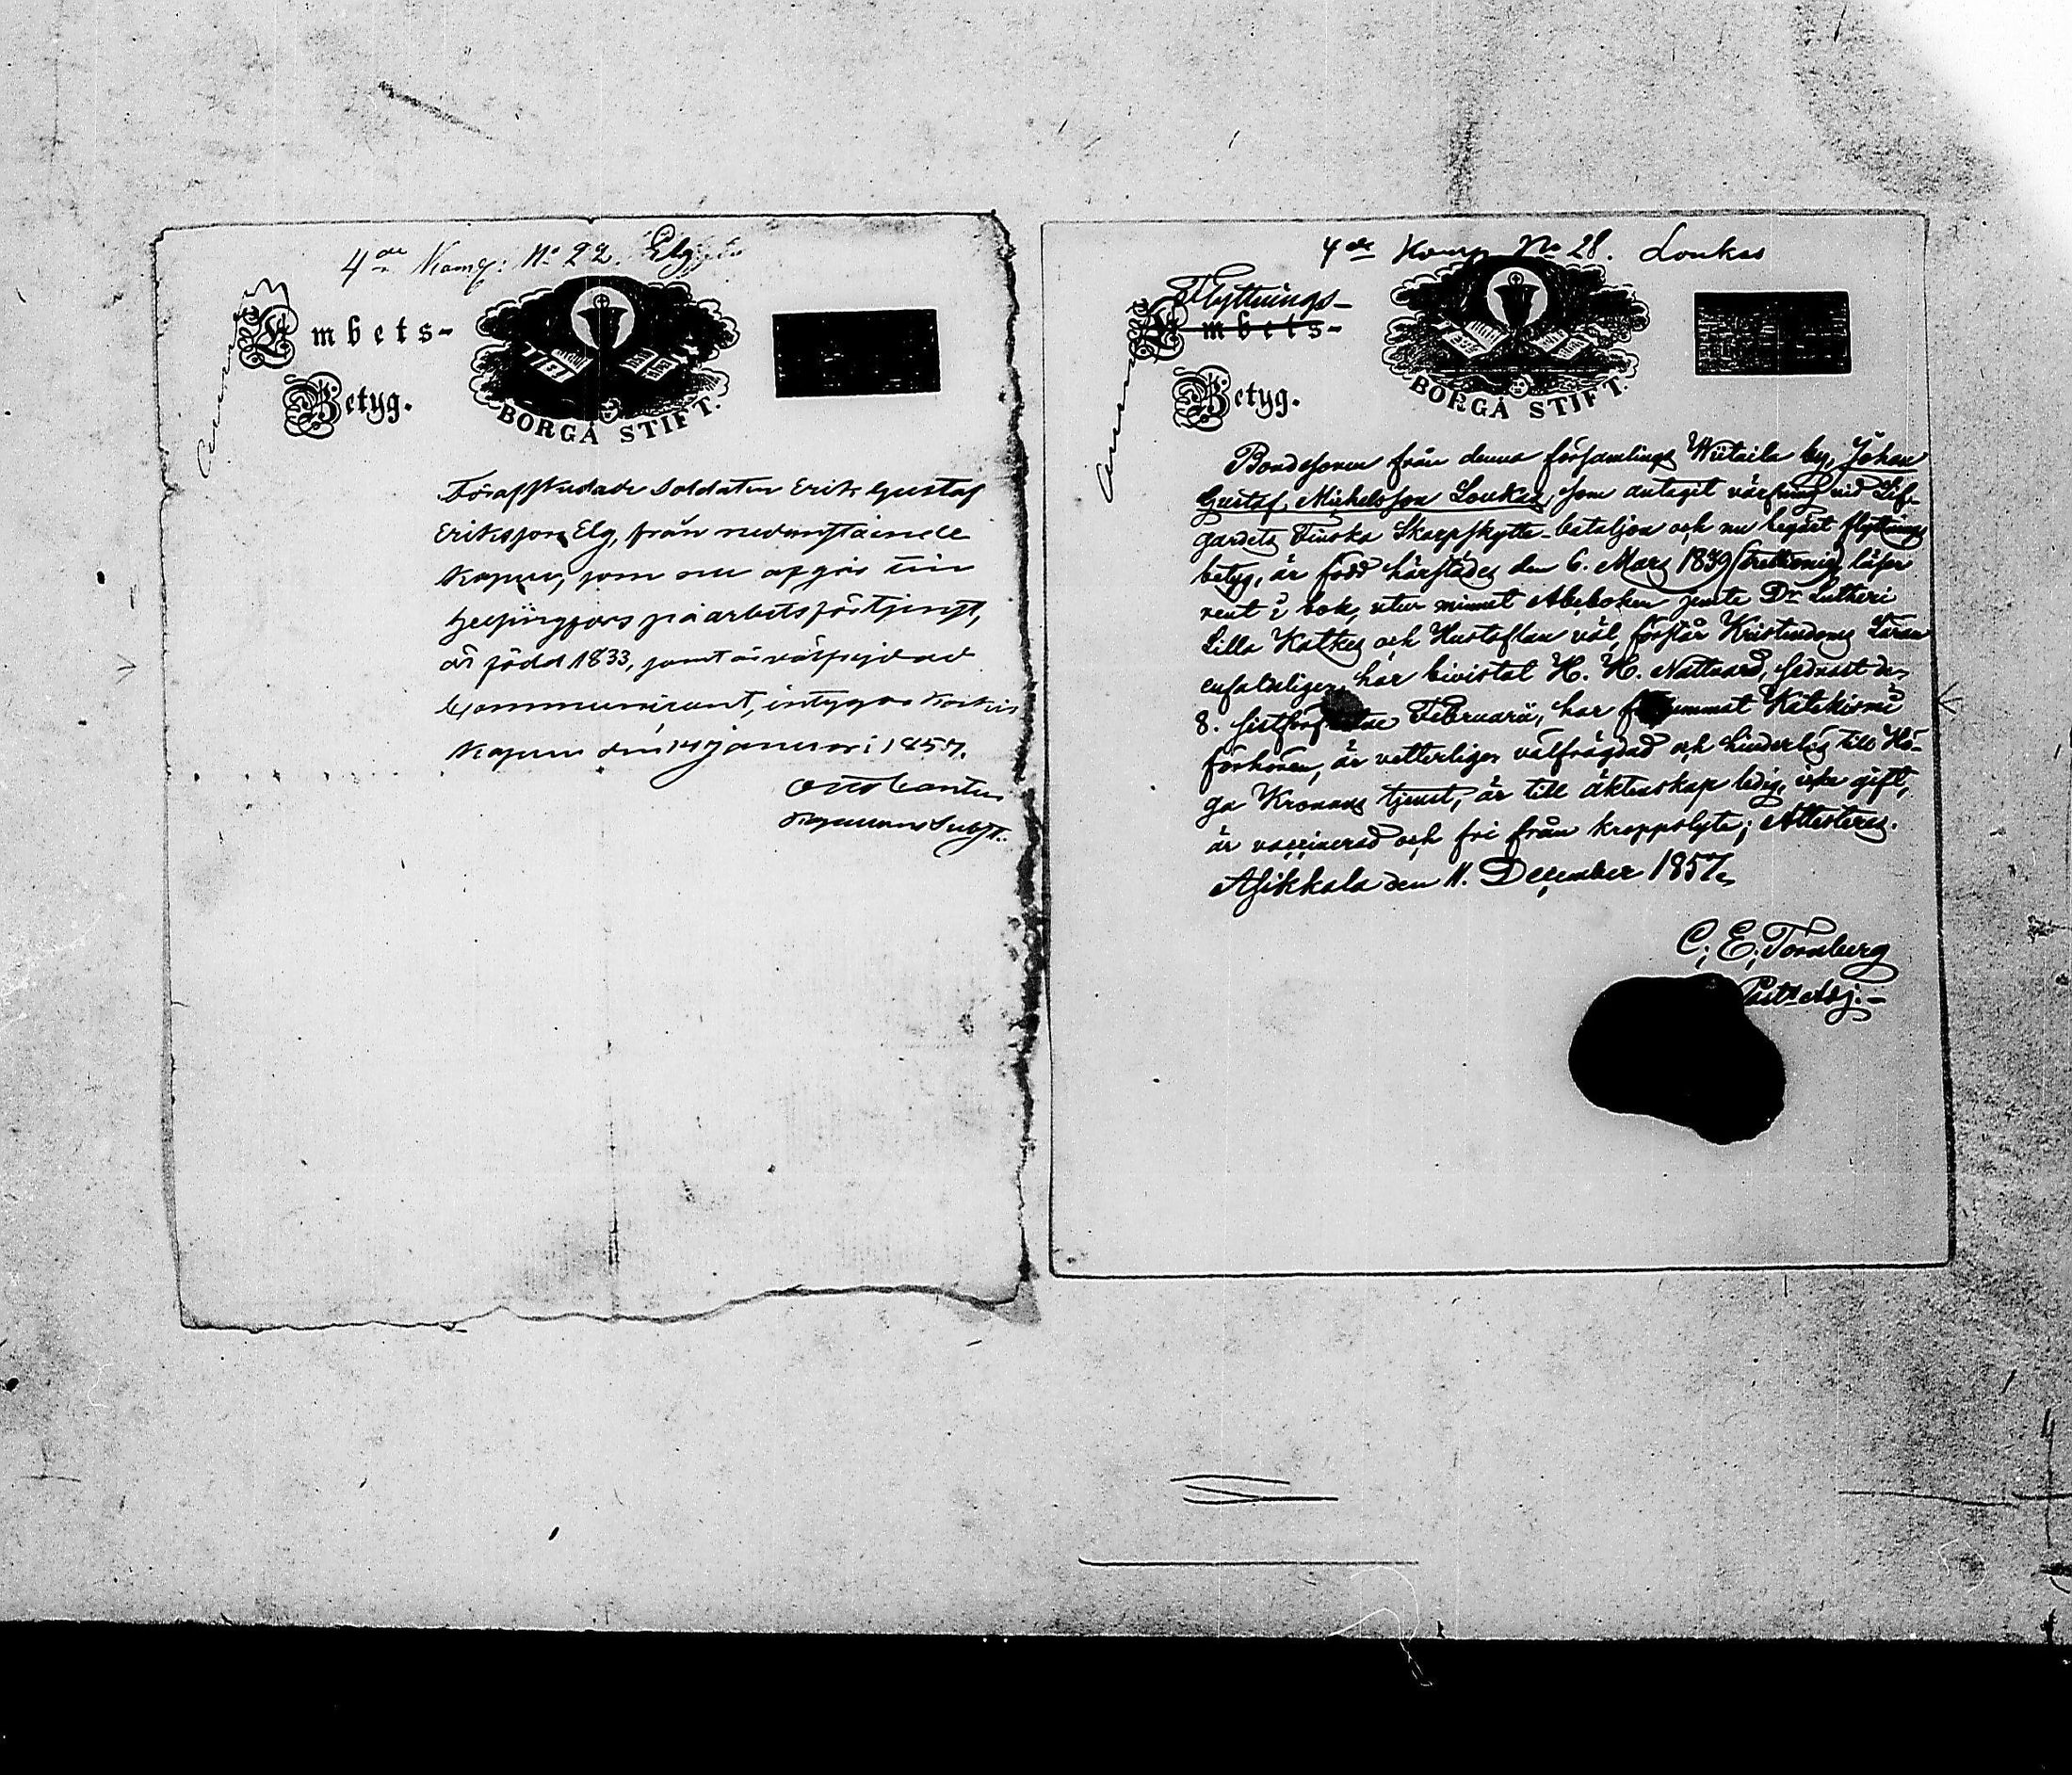 4de Komp: No 22. Elg
Embets-
Betyg.
BORGÅ STIFT.
Förafskedade Soldaten Erik Gustaf
Eriksson Elg, från nedanstående
Kapell, som nu afgår till
Helsingfors på arbetsförtjenst,
är född 1833, samt är välfrejdad
Communicant, intygas
Kapell den 14 Januari 1857.
4de Komp No 28. Loukas
Flyttnings-
Embets-
Betyg.
BORGÅ STIFT.
Bondesonen från denna församlings Wiitaila by, Johan
Gustaf Michelsson Loukas, som antagit värfning vid Lif-
gardets Finska Skarpskytte-bataljon och nu begärt flyttnings
betyg, är född härstädes den 6. Mars 1839 (trettionio), läser
rent i bok, utur minnet Abcboken jemte Dr Lutheri
Lilla Katkes och Hustaflan väl, förstår Kristendoms Läran
enfaldeligen, har bivistat H. H. Nattvard, sednast den
8. sistförflutne Februarii, har försummat Katekismi
förhören, är vetterligen välfrägdad och hinderlös till Hö-
ga Kronans tjenst, är till äktenskap ledig, icke gift,
är vaccinerad och fri från kroppslyte; Attesteras.
Asikkala den 11. December 1857.
C. E. Tornberg
Past: Adj.